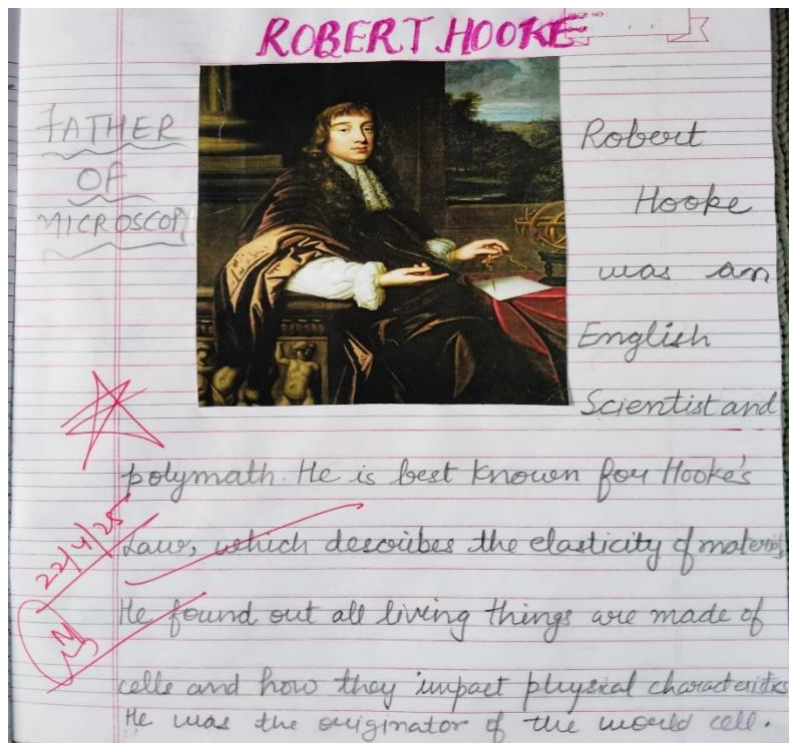 ROBERT HOOKE
PAGE NO:
FATHER
OF
MICROSCOPY
Robert
Hooke
was an
English
Scientist and
polymath. He is best known for Hooke's
Law, which describes the elasticity of materials
He found out all living things are made of
cells and how they impact physical characteristics
He was the originator of the would cell.
22/4/25